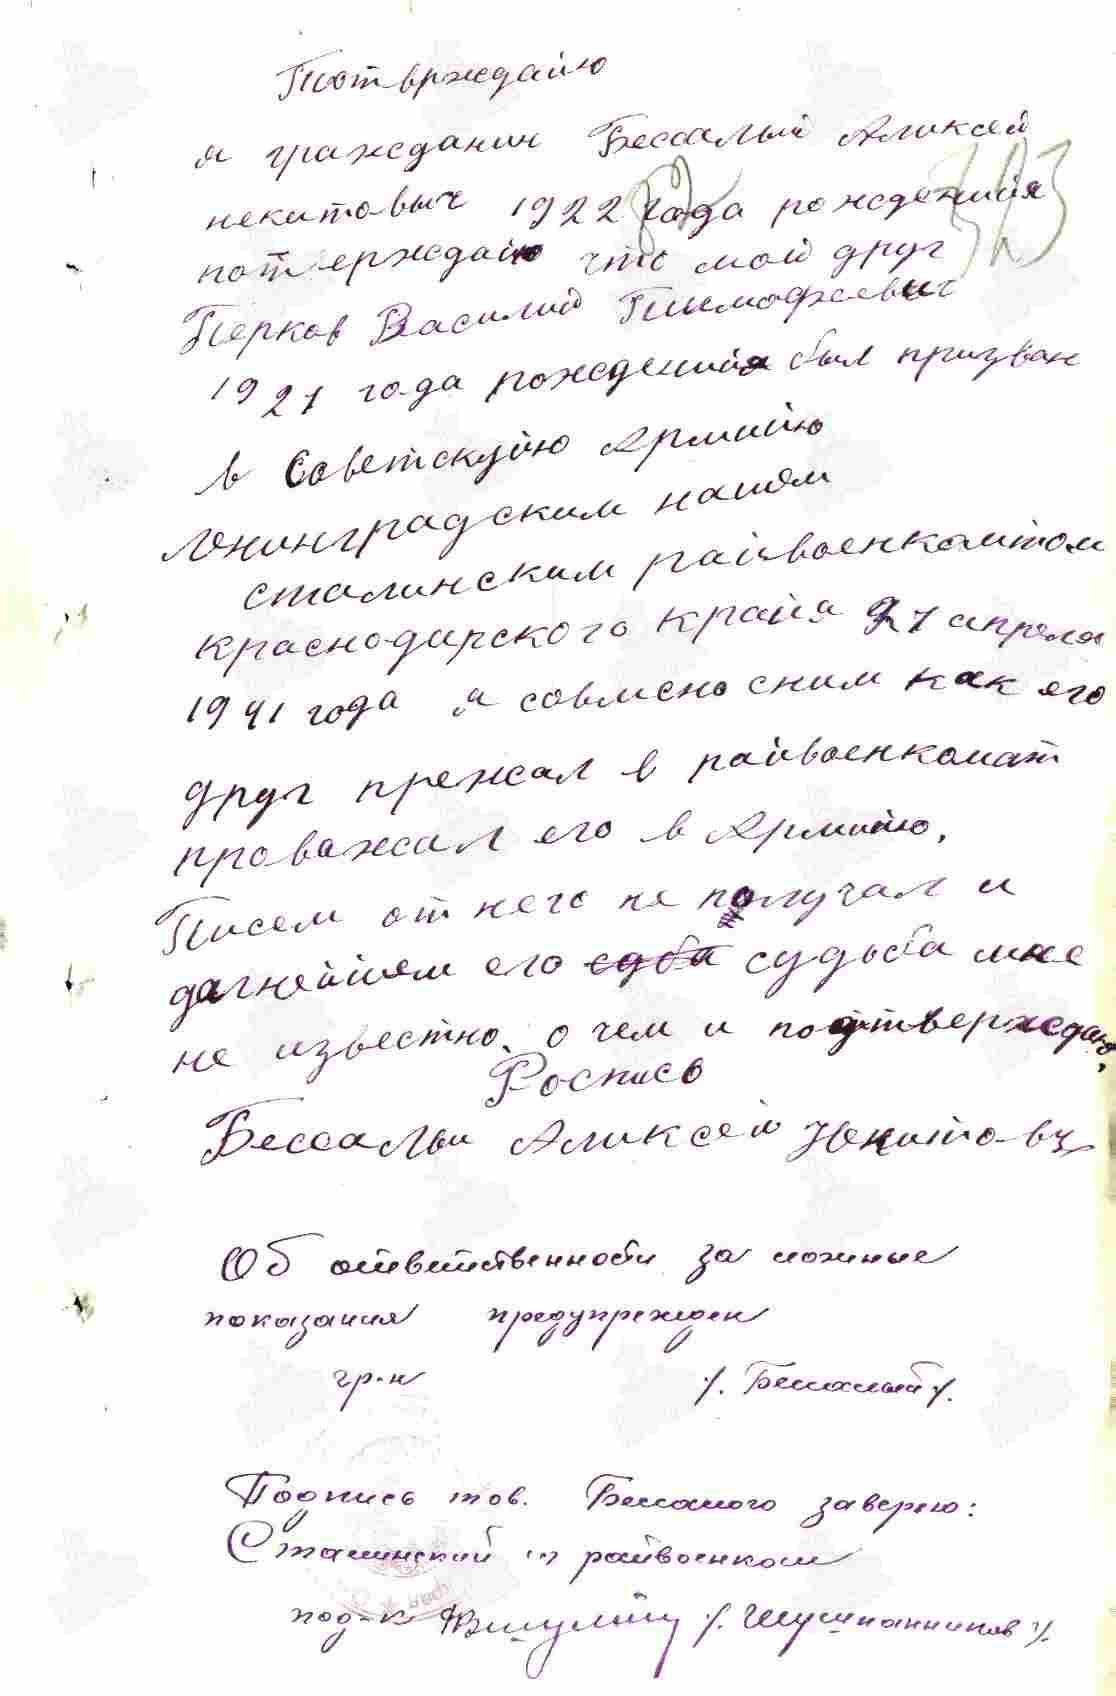 Потврждайю
я гражданин Бессалый Аликсей
некитовыч 1922 года рожденийя
потверждайю что мой друг
Перков Василий Тимофеевич
1921 года рожденийя был призван
в Советскуйю Армийю
Ленинградским нашем
сталинским райвоенкомитом
краснодарского крайя 27 апреля
1941 года я совмено сним как его
друг прежал в райвоенкомат
проважал его в Армийю.
Писем от него не получал и
дагнейшем его судьба мне
не известно. о чем и подтверждаю,
Роспись
Бессалы Аликсей Некитовч
Об ответственности за ложные
показания предупрежден
гр-н /. Бессалый /.
Подпись тов. Бессалого заверяю:
Сталинский райвоенком
под-к /. Шушпанников /.